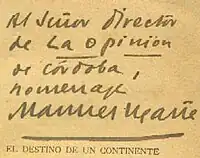 Al Señor director
de La Opinion
de Córdoba,
homenage
Manuel Ugarte
EL DESTINO DE UN CONTINENTE